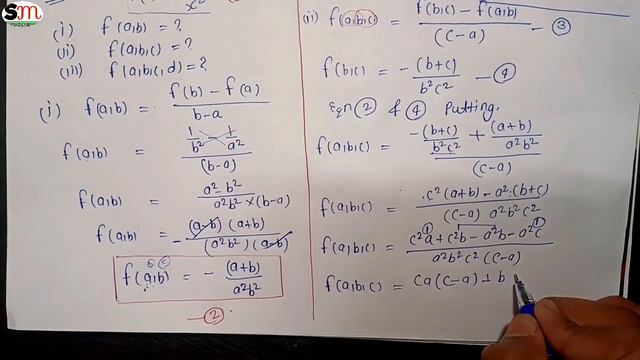 sm
x²
(i) f(a,b) = ?
(ii) f(a,b,c) = ?
(iii) f(a,b,c,d) = ?
(i) f(a,b) = f(b) - f(a) / b-a
f(a,b) = 1/b² - 1/a² / (b-a)
f(a,b) = a² - b² / a²b² × (b-a)
f(a,b) = - (a-b) (a+b) / (a²b²) (a-b)
b c
f(a,b) = - (a+b) / a²b²
②
(ii) f(a,b,c) = f(b,c) - f(a,b) / (c-a) — ③
f(b,c) = -(b+c) / b²c² — ④
Eqn ② & ④ putting.
f(a,b,c) = -(b+c)/b²c² + (a+b)/a²b² / (c-a)
f(a,b,c) = c²(a+b) - a²(b+c) / (c-a) a²b²c²
f(a,b,c) = c²a + c²b - a²b - a²c / a²b²c² (c-a)
f(a,b,c) = ca(c-a) + b